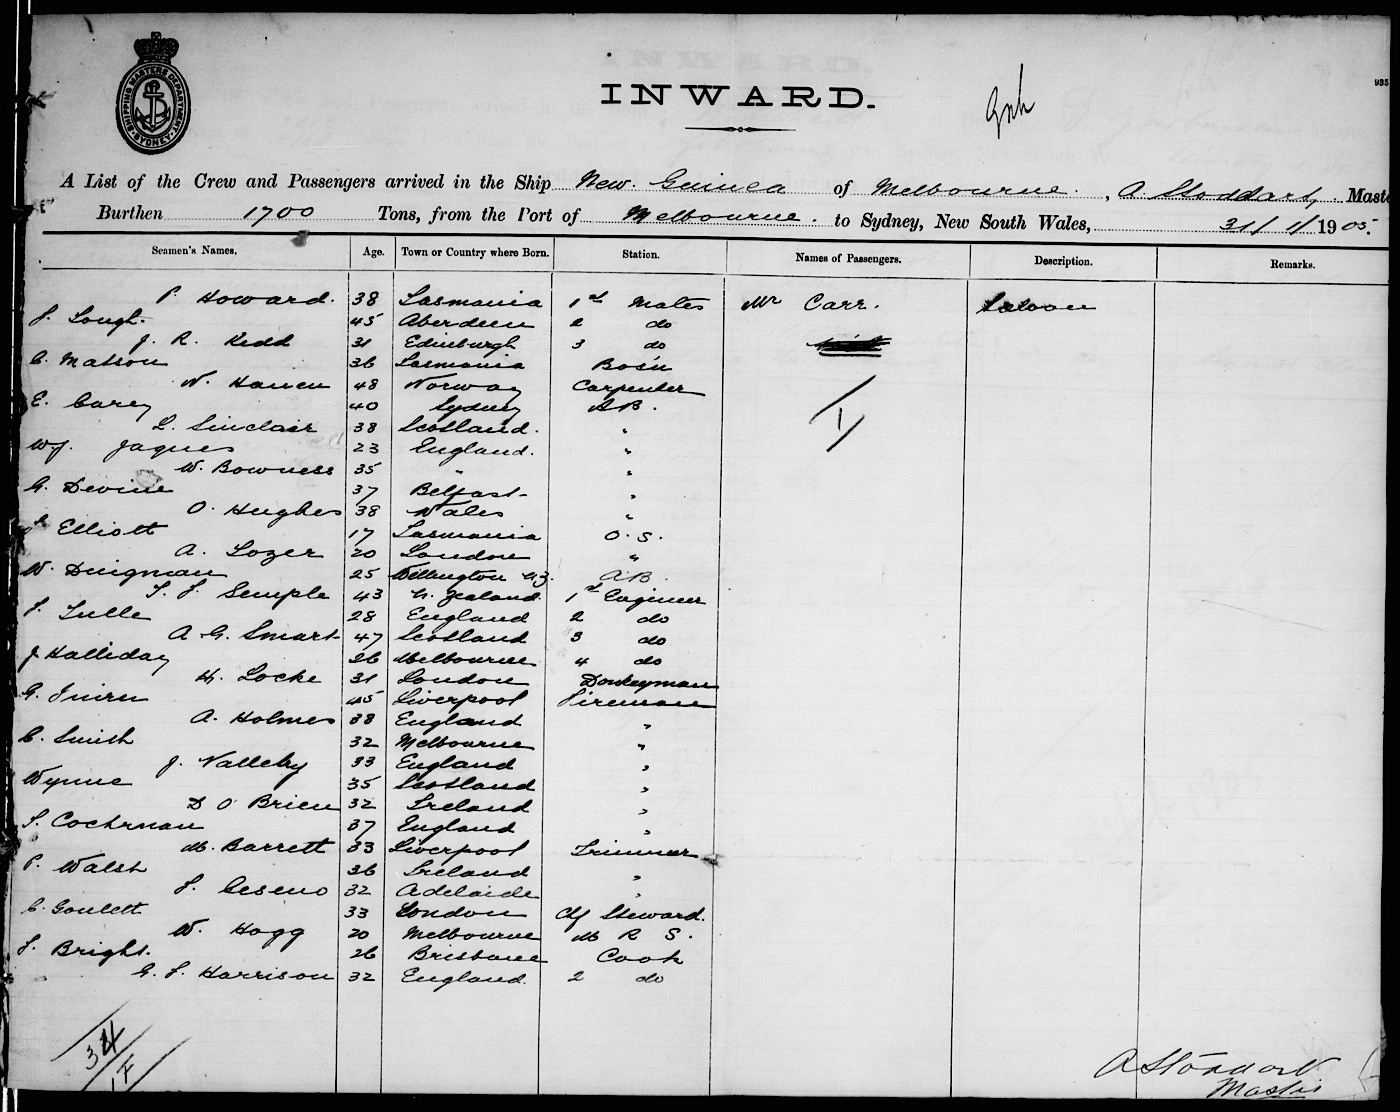 SHIPPING MASTERS DEPARTMENT SYDNEY
INWARD.
935
A List of the Crew and Passengers arrived in the Ship New Guinea of Melbourne, A Stoddart, Maste
Burthen 1700 Tons, from the Port of Melbourne. to Sydney, New South Wales, 31/1/1905.
Seamen's Names. Age. Town or Country where Born. Station. Names of Passengers. Description. Remarks.
P. Howard. 38 Tasmania 1st Mates Mr Carr. Saloon
45 Aberdeen 2 do
J. R. Kidd 31 Edinburgh 3 do
C. Matson 36 Tasmania Bos'n
W. Hansen 48 Norway Carpenter
E. Carey 40 Sydney AB.
L. Sinclair 38 Scotland. "
W.J. Jaques 23 England. "
W. Bowness 35 " "
G. Devine 37 Belfast "
O. Hughes 38 Wales "
Elliott 17 Tasmania O.S.
A. Lozer 20 London "
W. Duigman 25 Wellington NZ. AB.
T. J. Semple 43 N. Zealand. 1st Engineer
28 England 2 do
A. G. Smart 47 Scotland 3 do
J Halliday 26 Melbourne 4 do
H. Locke 31 London Donkeyman
G. 45 Liverpool Fireman
A. Holmes 38 England "
C. Smith 32 Melbourne "
J. 33 England "
Wynne 35 Scotland "
D O'Brien 32 Ireland "
Cochrnan 37 England "
M. Barrett 33 Liverpool Trimmer
P. Walsh 36 Ireland "
32 Adelaide "
C. Goulett 33 London Chf Steward.
W. Hogg 20 Melbourne M R S.
Bright. 26 Brisbane Cook
G. F. Harrison 32 England. 2 do
1
34
1F
A Stoddart
Master